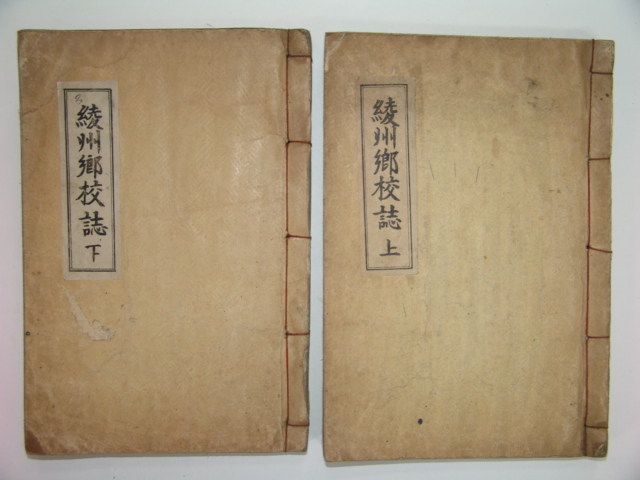 綾州鄕校誌 上
綾州鄕校誌 下